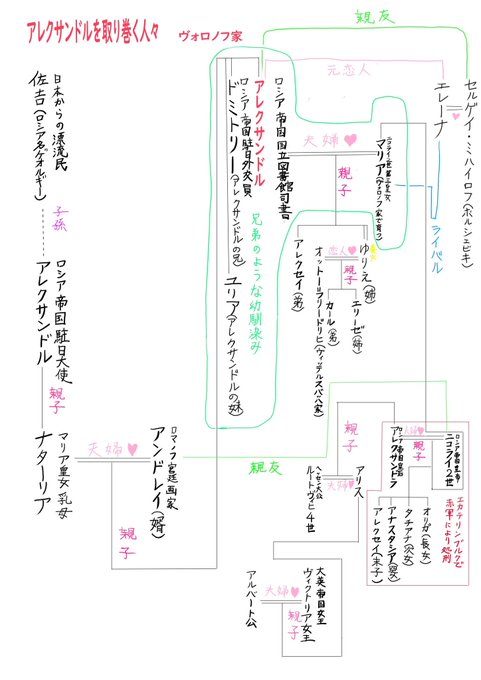 アレクサンドルを取り巻く人々
ヴォロノフ家
親友
元恋人
セルゲイ・ミハイロフ(ボルシェビキ)
エレーナ
ロシア帝国国立図書館司書
アレクサンドル
ロシア帝国駐日外交員
ドミトリー(アレクサンドルの兄)
ユリア(アレクサンドルの妹)
兄弟のような幼馴染み
夫婦
マリア(ヴォロノフ家で育つ)
親子
ライバル
ゆりえ(姉)
アレクセイ(弟)
恋人
オットー=フリードリヒ(ヴィッテルスバハ家)
親子
エリーゼ(姉)
カール(弟)
日本からの漂流民
佐吉(ロシア名ゲオルギー)
子孫
ロシア帝国駐日大使
アレクサンドル
親子
マリア皇女乳母
ナターリア
夫婦
ロマノフ宮廷画家
アンドレイ(婿)
親子
親友
ロシア帝国皇帝
ニコライ2世
夫婦
ロシア帝国皇后
アレクサンドラ
親子
オリガ(長女)
タチアナ(次女)
アナスタシア(四女)
アレクセイ(末子)
エカテリンブルクで
赤軍により処刑
親子
アリス
夫婦
ヘッセン大公
ルートヴィヒ4世
大英帝国女王
ヴィクトリア女王
親子
夫婦
アルバート公